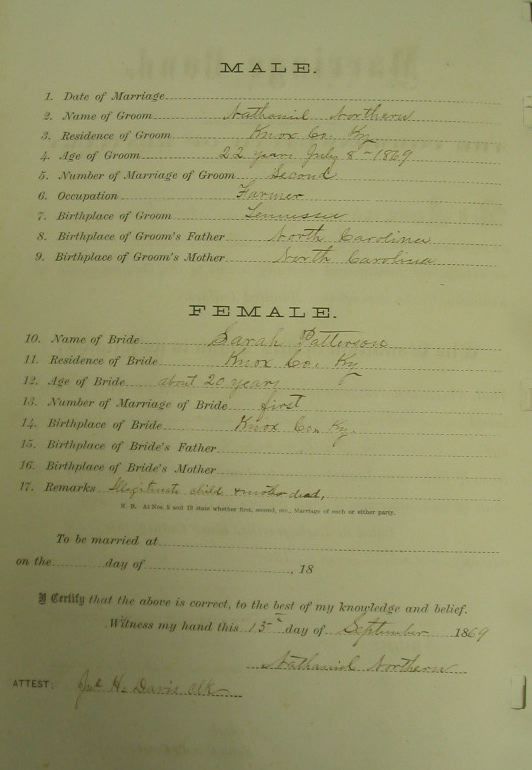 MALE.
1. Date of Marriage
2. Name of Groom Nathaniel Northern
3. Residence of Groom Knox Co. Ky
4. Age of Groom 22 years July 8 - 1869
5. Number of Marriage of Groom Second
6. Occupation Farmer
7. Birthplace of Groom Tennissee
8. Birthplace of Groom's Father North Carolina
9. Birthplace of Groom's Mother North Carolina
FEMALE.
10. Name of Bride Sarah Patterson
11. Residence of Bride Knox Co. Ky
12. Age of Bride about 20 years
13. Number of Marriage of Bride first
14. Birthplace of Bride Knox Co. Ky.
15. Birthplace of Bride's Father
16. Birthplace of Bride's Mother
17. Remarks Illegitimate child & mother dead,
N. B. At Nos. 5 and 13 state whether first, second, etc., Marriage of each or either party.
To be married at
on the day of , 18
I Certify that the above is correct, to the best of my knowledge and belief.
Witness my hand this 13th day of September 1869
Nathaniel Northern
ATTEST: Jno H. Davis Clk